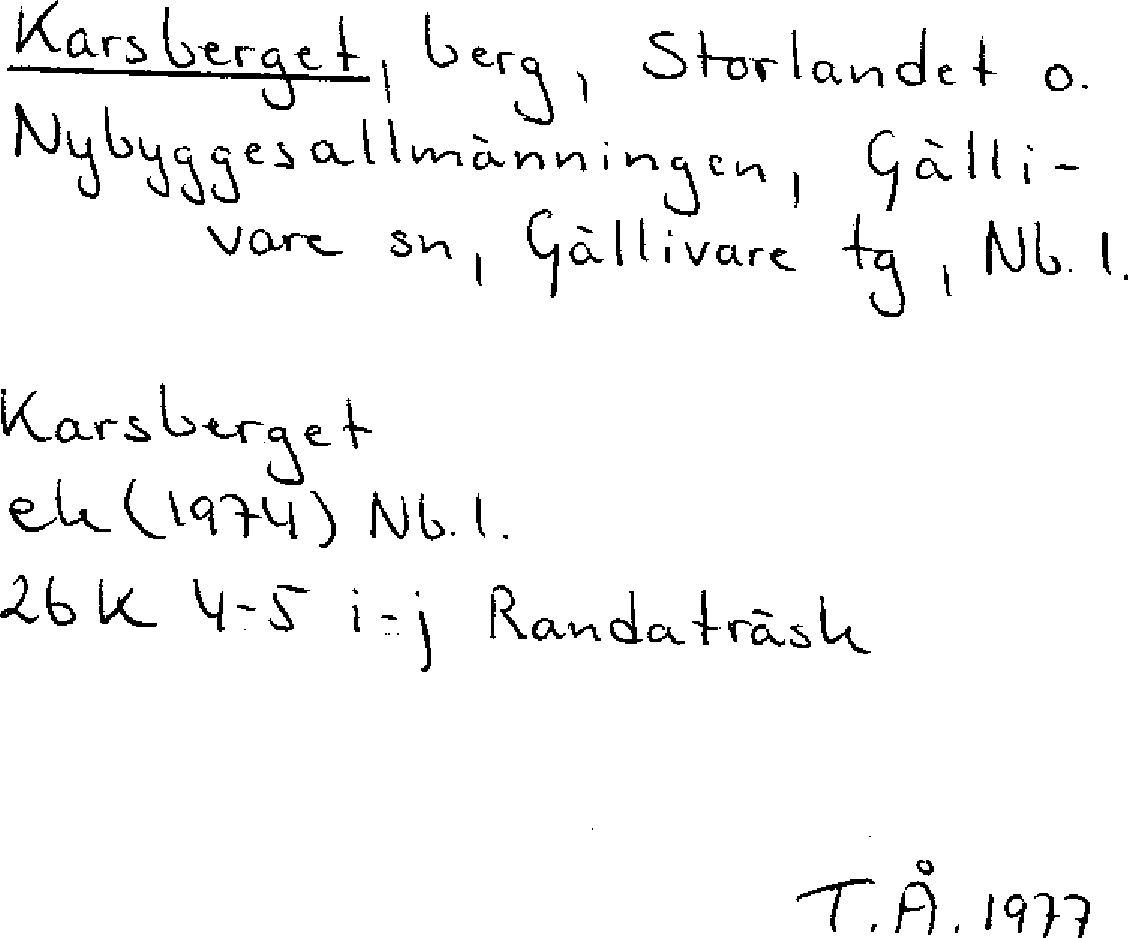 Karsberget, berg, Storlandet o.
Nybyggesallmänningen, Gälli-
vare sn, Gällivare tg, Nb. l.
Karsberget
ek (1974) Nb. l.
26K 4-5 i-j Randaträsk
T.Å. 1977